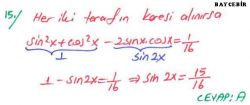 BAYCEBİR
15.) Her iki tarafın karesi alınırsa
sin²x + cos²x - 2sinx.cosx = 1/16
1 sin2x
1 - sin2x = 1/16 ⇒ sin2x = 15/16
CEVAP: A